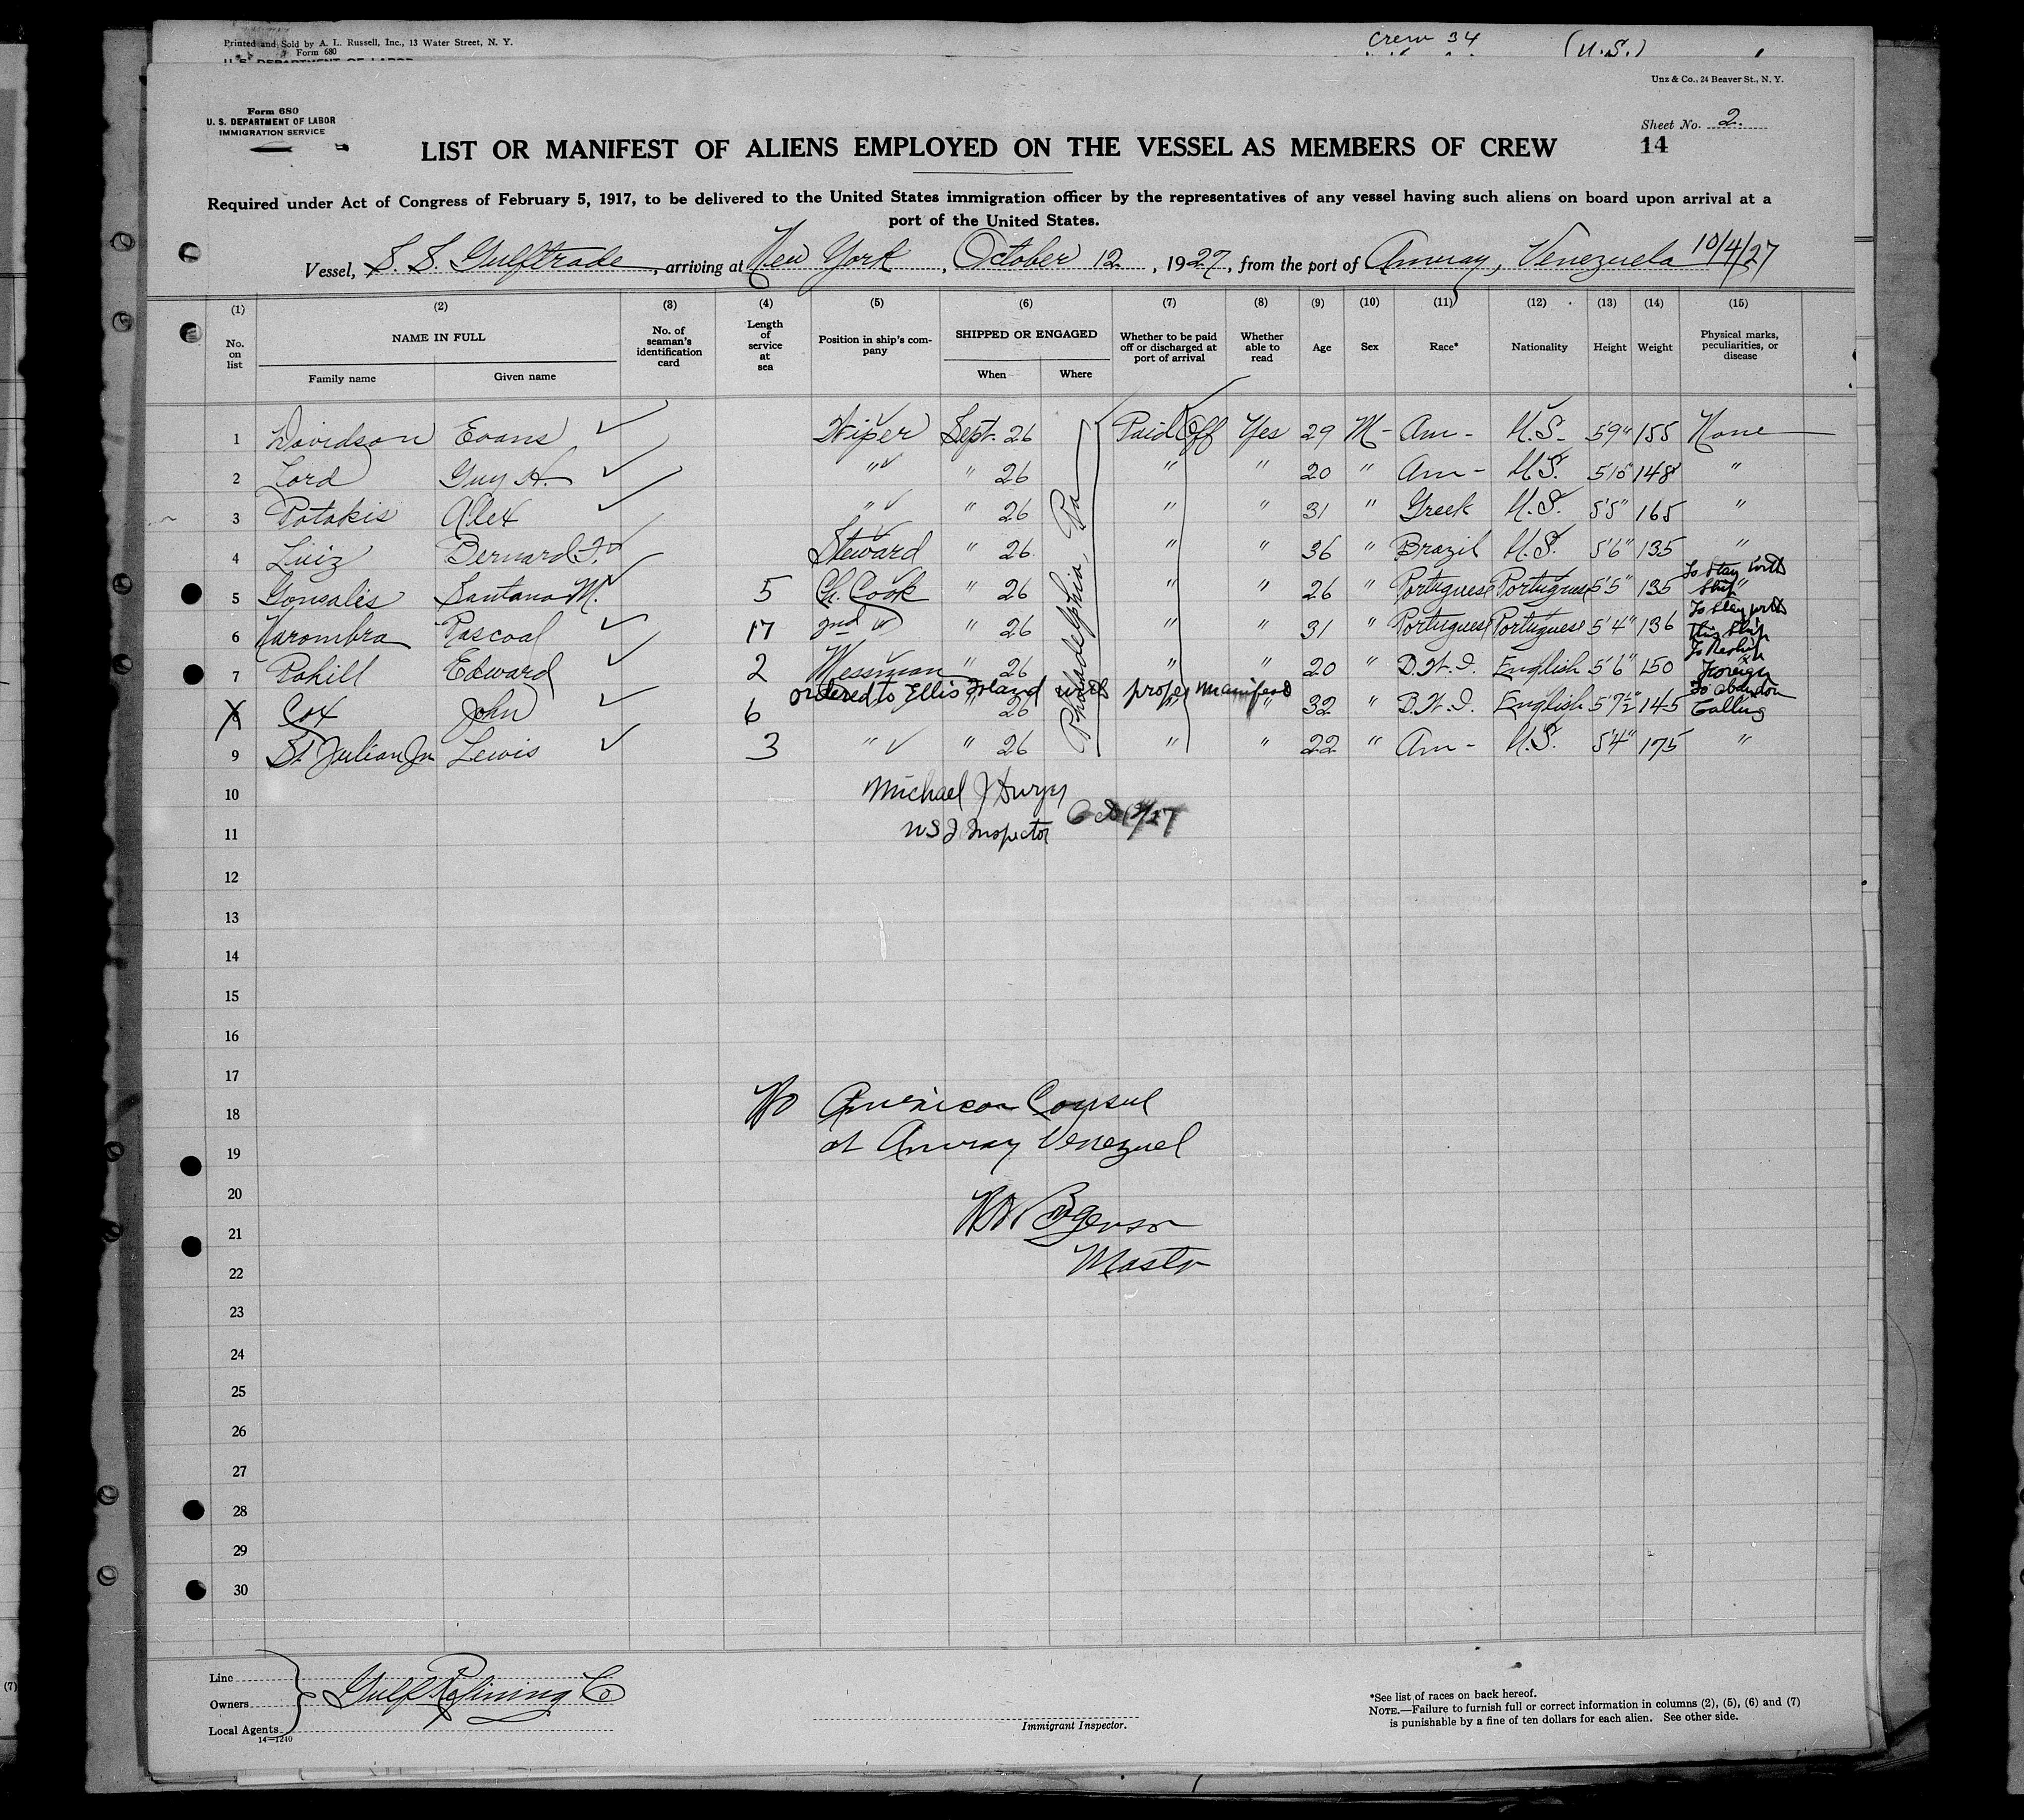 Printed and Sold by A. L. Russell, Inc., 13 Water Street, N. Y.
Form 680
U. S. DEPARTMENT OF LABOR
Crew 34 (U.S.)
Unz & Co., 24 Beaver St., N. Y.
Form 680
U. S. DEPARTMENT OF LABOR
IMMIGRATION SERVICE
Sheet No. 2
14
LIST OR MANIFEST OF ALIENS EMPLOYED ON THE VESSEL AS MEMBERS OF CREW
Required under Act of Congress of February 5, 1917, to be delivered to the United States immigration officer by the representatives of any vessel having such aliens on board upon arrival at a
port of the United States.
Vessel, S. S. Gulftrade, arriving at New York, October 12, 1927, from the port of Amuay, Venezuela 10/4/27
(1) (2) (3) (4) (5) (6) (7) (8) (9) (10) (11) (12) (13) (14) (15)
No. on list NAME IN FULL Family name Given name No. of seaman's identification card Length of service at sea Position in ship's company SHIPPED OR ENGAGED When Where Whether to be paid off or discharged at port of arrival Whether able to read Age Sex Race* Nationality Height Weight Physical marks, peculiarities, or disease
1 Davidson Evans Wiper Sept. 26 Philadelphia, Pa Paid Off Yes 29 M- Am- U.S. 5 9" 155 None
2 Lord Guy H. " " 26 " " 20 " Am- U.S. 5 10" 148 "
3 Potakis Alex " " 26 " " 31 " Greek U.S. 5'5" 165 "
4 Luiz Bernard F. Steward " 26 " " 36 " Brazil U.S. 5'6" 135 "
5 Gonsales Santana M. 5 Ch. Cook " 26 " " 26 " Portuguese Portuguese 5'5" 135 " To Stay with Ship
6 Narombra Pascoal 17 2nd " " 26 " " 31 " Portuguese Portuguese 5'4" 136 To Stay with this Ship
7 Rohill Edward 2 Messman " 26 " " 20 " B.W.I. English 5'6" 150 To Reship Foreign
ordered to Ellis Island with proper manifest
8 Cox John 6 " 26 " " 32 " B.W.I. English 5'7½" 145 To abandon Calling
9 St. Julian Jr Lewis 3 " " 26 " " 22 " Am- U.S. 5'4" 175 "
10 Michael J Dwyer
11 U S I Inspector Oct 12/27
12
13
14
15
16
17
18 No American Consul
19 at Amuay Venezuel
20
21
22 Master
23
24
25
26
27
28
29
30
Line
Owners Gulf Refining Co
Local Agents
14—1240
Immigrant Inspector.
*See list of races on back hereof.
NOTE.—Failure to furnish full or correct information in columns (2), (5), (6) and (7)
is punishable by a fine of ten dollars for each alien. See other side.
(7)